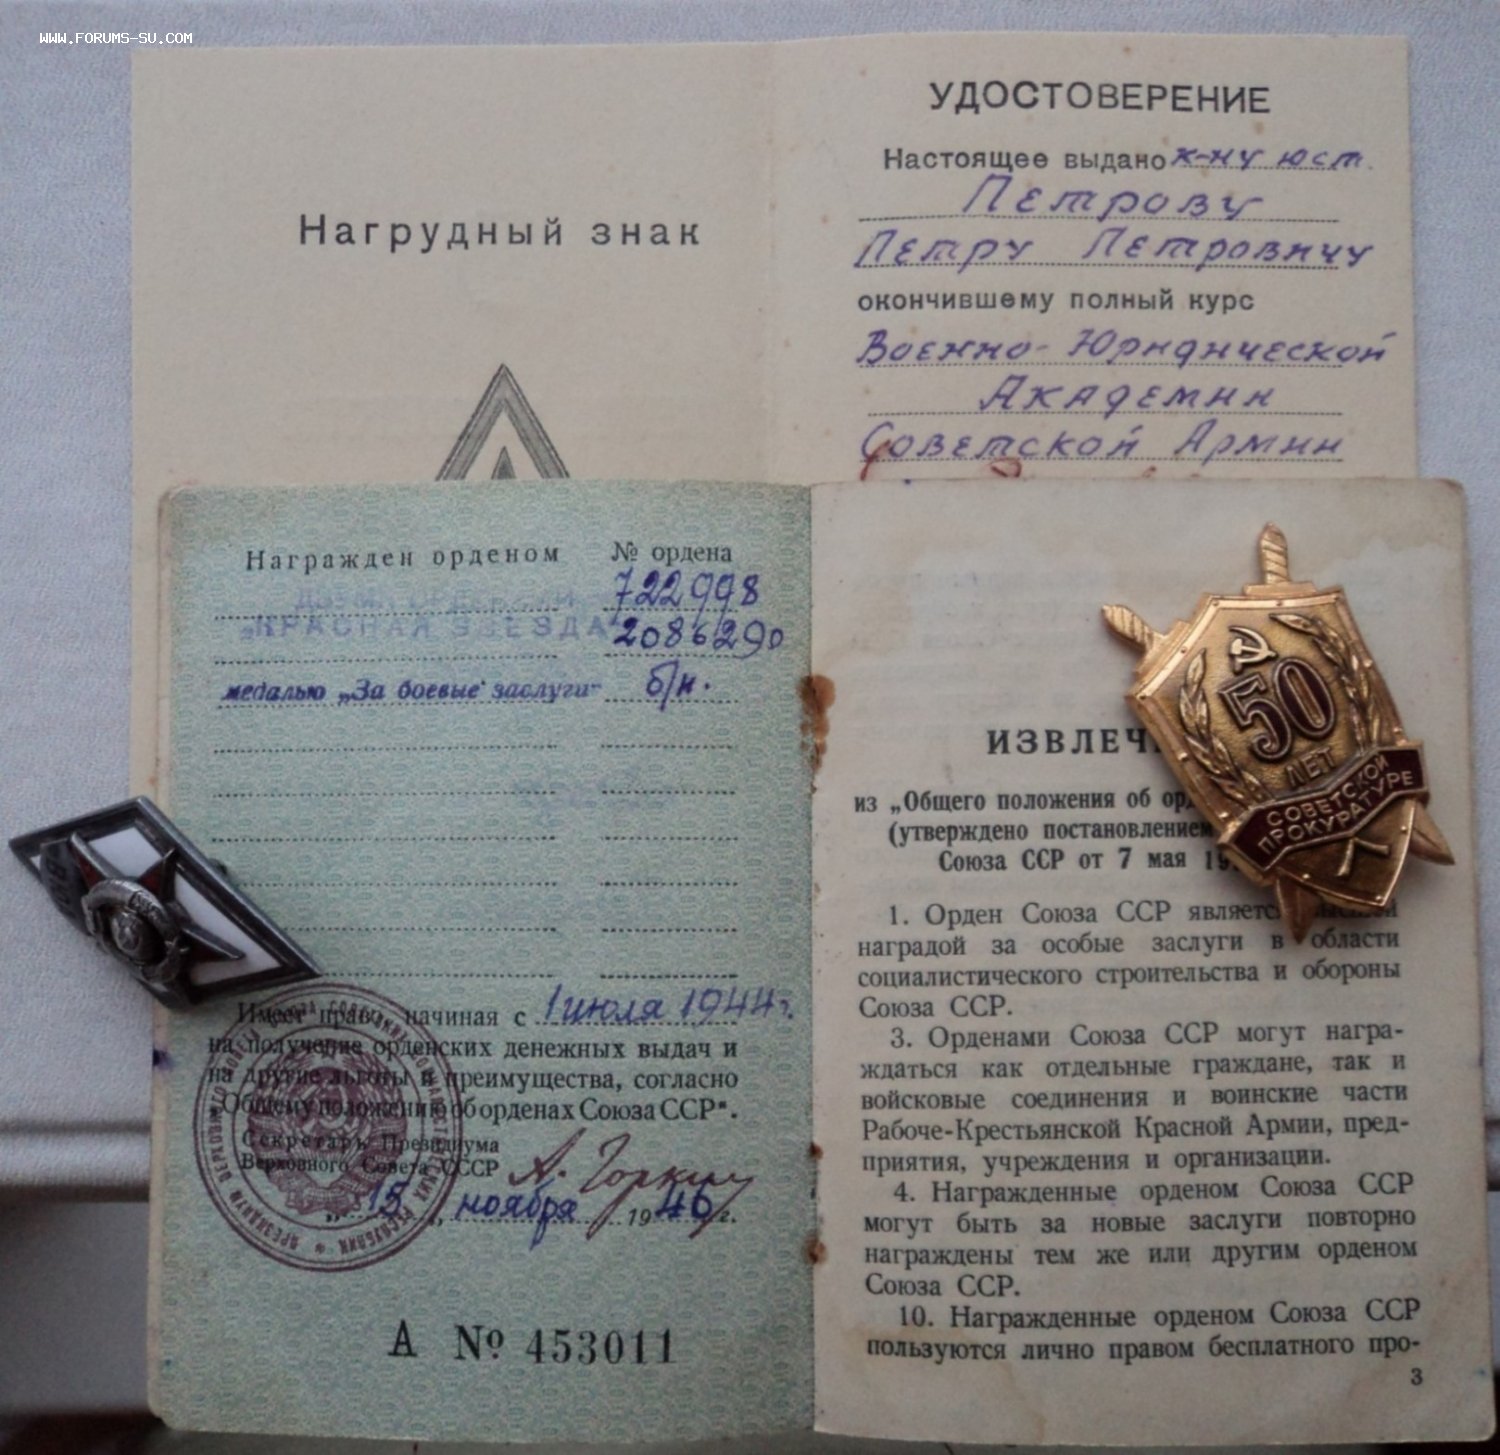 WWW.FORUMS-SU.COM
Нагрудный знак
УДОСТОВЕРЕНИЕ
Настоящее выдано к-ну юст.
Петрову
Петру Петровичу
окончившему полный курс
Военно-Юридической
Академии
Советской Армии
Награжден орденом № ордена
ДВУМЯ ОРДЕНАМИ 722998
„КРАСНАЯ ЗВЕЗДА“ 2086290
медалью „За боевые заслуги“ б/н.
Имеет право начиная с 1 июля 1944 г.
на получение орденских денежных выдач и
на другие льготы и преимущества, согласно
Общему положению об орденах Союза ССР".
Секретарь Президиума
Верховного Совета СССР А. Горкин
„15„ ноября 1946 г.
А № 453011
ИЗВЛЕЧ
из „Общего положения об орд
(утверждено постановлением
Союза ССР от 7 мая 19
1. Орден Союза ССР является высшей
наградой за особые заслуги в области
социалистического строительства и обороны
Союза ССР.
3. Орденами Союза ССР могут награ-
ждаться как отдельные граждане, так и
войсковые соединения и воинские части
Рабоче-Крестьянской Красной Армии, пред-
приятия, учреждения и организации.
4. Награжденные орденом Союза ССР
могут быть за новые заслуги повторно
награждены тем же или другим орденом
Союза ССР.
10. Награжденные орденом Союза ССР
пользуются лично правом бесплатного про-
3
50
ЛЕТ
СОВЕТСКОЙ
ПРОКУРАТУРЕ